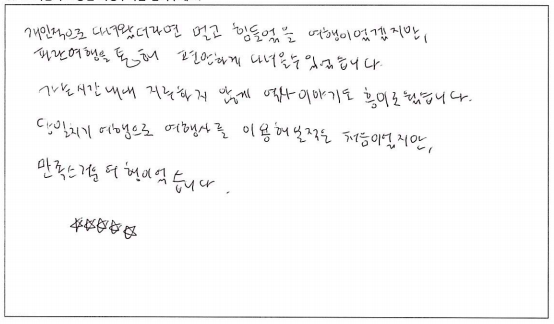 개인적으로 다녀왔더라면 멀고 힘들었을 여행이었겠지만,
파란여행을 통해 편안하게 다녀올수 있었습니다.
가는시간 내내 지루하지 않게 역사이야기도 흥미로웠습니다.
당일치기 여행으로 여행사를 이용해 본적은 처음이었지만,
만족스러운 여행이었습니다.
☆☆☆☆☆